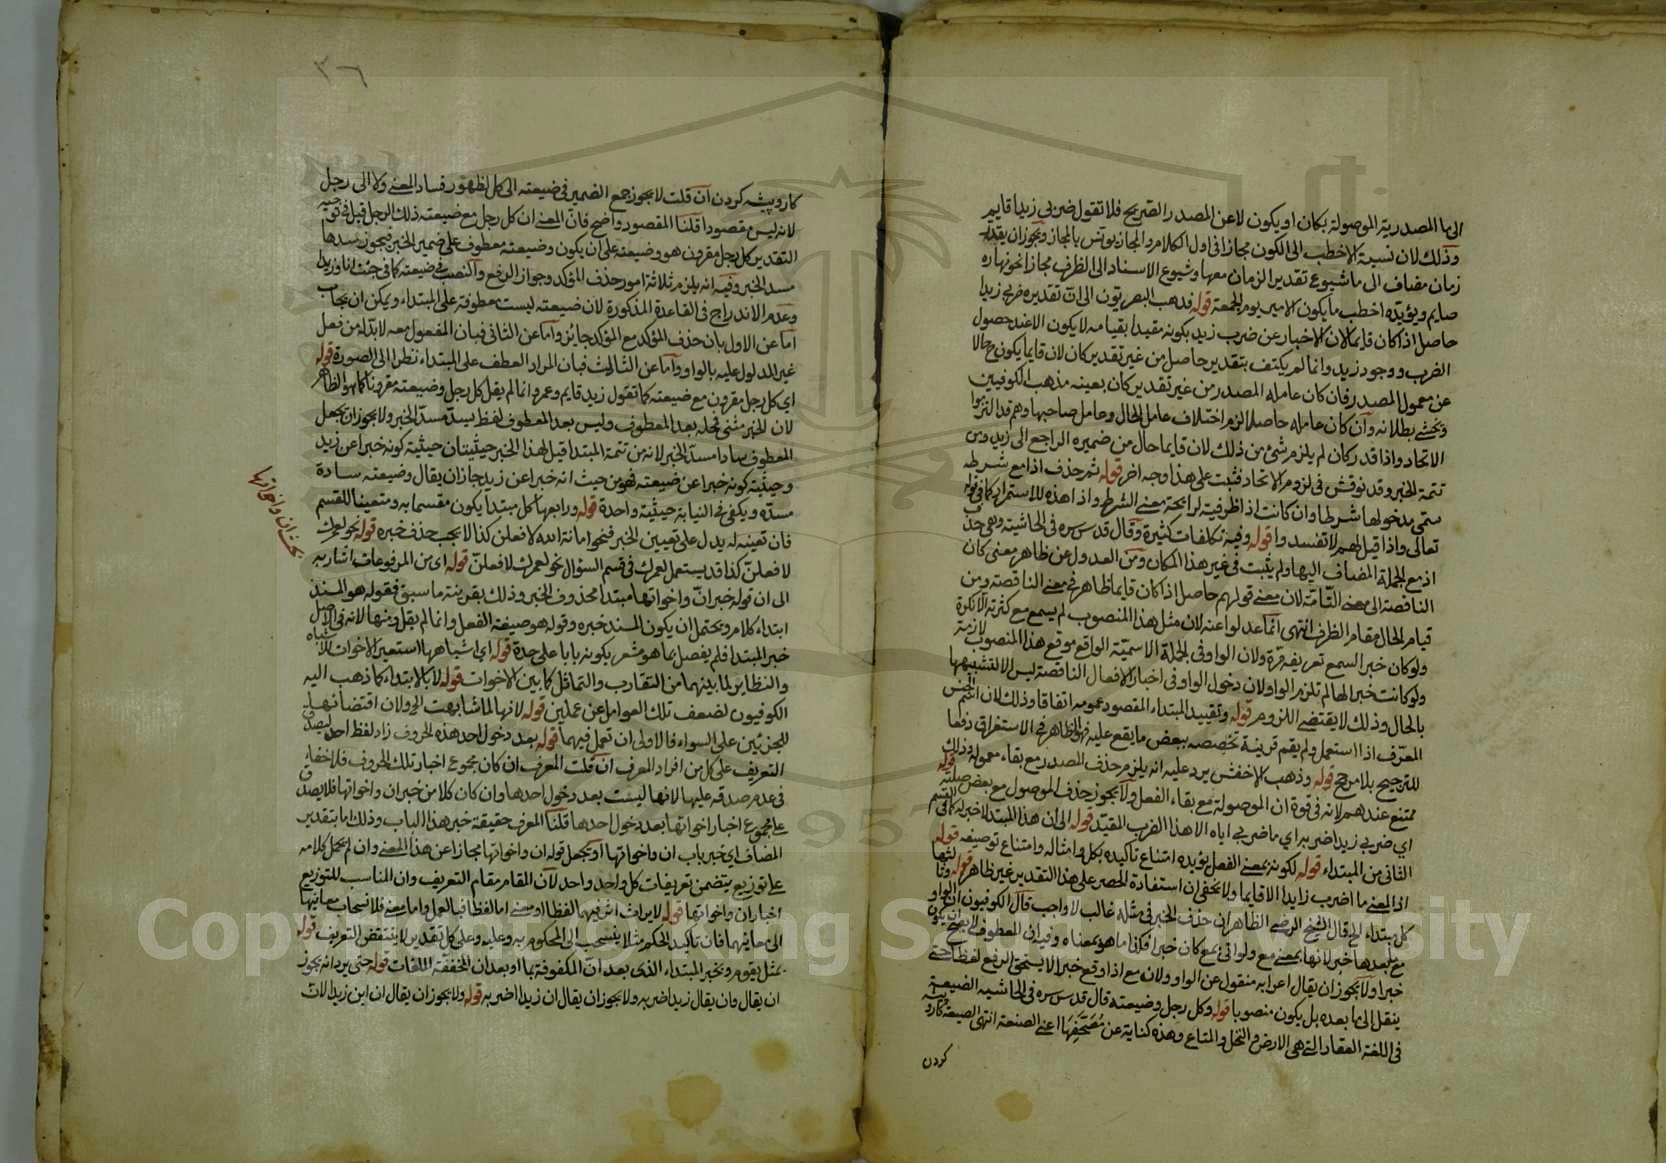 الى ما المصدرية الموصولة بكان او يكون لا عن المصدر الصريح فلا تقول ضربى زيدا قايم
وذلك لان نسبة الاخطب الى الكون مجازا فى اول الكلام والمجاز يونس بالمجاز ويجوز ان يقدر
زمان مضاف الى ما شيوع تقدير الزمان معها وشيوع الاسناد الى الظرف مجازا نحو نهاره
صايم ويؤيده اخطب ما يكون الامير يوم الجمعة قوله فذهب البصريون الى ان تقديره ضربى زيدا
حاصل اذا كان قايما لان الاخبار عن ضرب زيد بكونه مقيدا بقيامه لا يكون الا عند حصول
الضرب ووجود زيد وانما لم يكتف بتقدير حاصل من غير تقدير كان لان قايما يكون ح حالا
عن معمول المصدر فان كان عامله المصدر من غير تقدير كان بعينه مذهب الكوفيين
ويجئ بطلانه وان كان عامله حاصلا لزم اختلاف عامل الحال وعامل صاحبها وهم قد التزموا
الاتحاد واذا قدر كان لم يلزم شئ من ذلك لان قايما حال من ضميره الراجع الى زيد
تتمة الخبر وقد نوقش فى لزوم الاتحاد فثبت على هذا وجه اخر قوله ثم حذف اذا مع شرطه
سمى مدخولها شرطا وان كانت اذا ظرفية لرايحة معنى الشرط واذا هذه للاستمرار كما فى قوله
تعالى واذا قيل لهم لا تفسدوا قوله وفيه تكلفات كثيرة وقال قدس سره فى الحاشية وهى حذف
اذ مع الجملة المضاف اليها ولم يثبت فى غير هذا المكان ومن العدول عن ظاهر معنى كان
الناقصة الى معنى التامة لان معنى قولهم حاصل اذا كان قايما ظاهر فى معنى الناقصة ومن
قيام الحال مقام الظرف انتهى انما عدلوا عنه لان مثل هذا المنصوب لم يسمع مع كثرته الا نكرة
ولو كان خبر السمع تعريفه مرة ولان الواو فى الجملة الاسمية الواقع موقع هذا المنصوب لازمة
ولو كانت خبرا لها لم تلزم الواو لان دخول الواو فى اخبار الافعال الناقصة ليس الا لتشبيهها
بالحال وذلك لا يقتضى اللزوم قوله وتقييد المبتداء المقصود عمومه اتفاقا وذلك لان اسم الجنس
المعرف اذا استعمل ولم يقم قرينة تخصصه ببعض ما يقع عليه فهو الظاهر فى الاستغراق دفعا
للترجيح بلا مرجح قوله وذهب الاخفش يرد عليه انه يلزم حذف المصدر مع بقاء معموله وذلك
ممتنع عندهم لانه فى قوة ان الموصولة مع بقاء الفعل ولا يجوز حذف الموصول مع بعض صلته قوله
اي ضربى زيدا ضربه اي ما ضربى اياه الا هذا الضرب المقيد قوله الى ان هذا المبتدا لا خبر له كما فى القسم
الثانى من المبتداء قوله لكونه بمعنى الفعل يؤيده امتناع تاكيده بكل وامثاله وامتناع توصيفه قوله
اذ المعنى ما اضرب زايدا الا قايما ولا يخفى ان استفادة الحصر على هذا التقدير غير ظاهر قوله
كل مبتداء الخ قال الشيخ الرضى الظاهر ان حذف الخبر فى مثله غالب لا واجب قال الكوفيون ان الواو
مع ما بعدها خبر لانها بمعنى مع ولو اتى بمع كان خبرا فكذا ما هو بمعناه وفيه ان المعطوف لا يصح ان يكون
خبرا ولا يجوز ان يقال اعرابه منقول عن الواو ولان مع اذا وقع خبرا لا يستحق الرفع لفظا حتى
ينقل الى ما بعده بل يكون منصوبا قوله وكل رجل وضيعته قال قدس سره فى الحاشيه الضيعة
فى اللغة العقار التى هى الارض والنخل والمتاع وهذه كناية عن مصحفها اعنى الصنعة انتهى الصيغه كار و پيشه
كردن
٣٦
كار و پيشه كردن ان قلت لا يجوز جمع الضمير فى ضيعته الى كل لظهور فساد المعنى ولا الى رجل
لانه ليس مقصودا قلنا المقصود واضح فان المعنى ان كل رجل مع ضيعته ذلك الرجل قيل فى توجيه
التقدير كل رجل مقرون هو وضيعته على ان يكون وضيعته معطوف على ضمير الخبر فيجوز سدها
مسد الخبر وفيه انه يلزم ثلاثة امور حذف المؤكد وجواز الرفع والنصب فى ضيعته كما فى جئت انا وزيدا
وعدم الاندراج فى القاعدة المذكورة لان ضيعته ليست معطوفة على المبتداء ويمكن ان يجاب
اما عن الاول بان حذف المؤكد مع المؤكد جايز واما عن الثانى فبان المفعول معه لا بد له من فعل
غير المدلول عليه بالواو واما عن الثالث فبان المراد العطف على المبتداء نظرا الى الصورة قوله
اي كل رجل مقرون مع ضيعته كما تقول زيد قايم وعمرو وانما لم يقل كل رجل وضيعته مقرونان كما هو الظاهر
لان الخبر مثنى محله بعد المعطوف وليس بعد المعطوف لفظ يسد مسد الخبر ولا يجوز ان يجعل
المعطوف سادا مسد الخبر لانه من تتمة المبتدا قيل لهذا الخبر حيثيتان حيثية كونه خبرا عن زيد
وحيثية كونه خبرا عن ضيعته فمن حيث انه خبرا عن زيد جاز ان يقال وضيعته سادة
مسده ويكفى فى النيابة حيثية واحدة قوله ورابعها كل مبتدا يكون مقسما به ومتعينا للقسم
فان تعينه له يدل على تعيين الخبر فنحو امانة الله لافعلن كذا لا يجب حذف خبره قوله نحو لعمرك
لافعلن كذا قد يستعمل لعمرك فى قسم السؤال نحو لعمرك لا فعلن قوله اى من المرفوعات اشار به
الى ان قوله خبر ان واخواتها مبتدا محذوف الخبر وذلك بقرينة ما سبق فقوله هو المسند
ابتداء كلام ويحتمل ان يكون المسند خبره وقوله هو صيغة الفصل وانما لم يقل ومنها لانه فى الاصل
خبر المبتدا فلم يفصل بما هو مشعر بكونه بابا على حدة قوله اى اشباهها استعير الاخوات للاشباه
والنظاير لما بينهما من التقارب والتماثل كما بين الاخوات قوله لا بالابتداء كما ذهب اليه
الكوفيون لضعف تلك العوامل عن عملين قوله لانها لما شابهت الخ ولان اقتضائها
للجزئين على السواء فالاولى ان تعمل فيهما قوله بعد دخول احد هذه الحروف زاد لفظ احد ليصدق
التعريف على كل من افراد المعرف ان قلت المعرف ان كان مجموع اخبار تلك الحروف فلا خفاء
فى عدم صدقه عليها لانها ليست بعد دخول احدها وان كان كلا من خبر ان واخواتها فلا يصدق
على مجموع اخبار اخواتها بعد دخول احدها قلنا المعرف حقيقة خبر هذا الباب وذلك اما بتقدير
المضاف اي خبر باب ان واخواتها او بجعل قوله ان واخواتها مجازا عن هذا المعنى وان لم يحمل كلامه
على توزيع يتضمن تعريفات كل واحد واحد لان المقام مقام التعريف وان المناسب للتوزيع
اخبار ان واخواتها قوله لايراث اثر فيهما لفظا او معنى اما لفظا فبالعمل واما معنى فلا نسحاب معانيها
الى معانيهما فان تاكيد الحكم مثلا ينسحب الى المحكوم به وعليه وعلى كل تقدير لا ينتقض التعريف قوله
بمثل يقوم وبخبر المبتداء الذى بعد ان المكفوفة بما او بعد ان المخففة الملغات قوله حتى يرد انه يجوز
ان يقال وان يقال زيد اضربه ولا يجوز ان يقال ان زيدا اضربه قوله ولا يجوز ان يقال ان اين زيدا لان
بحث ان واخواتها
Copyright © King Saud University
1957